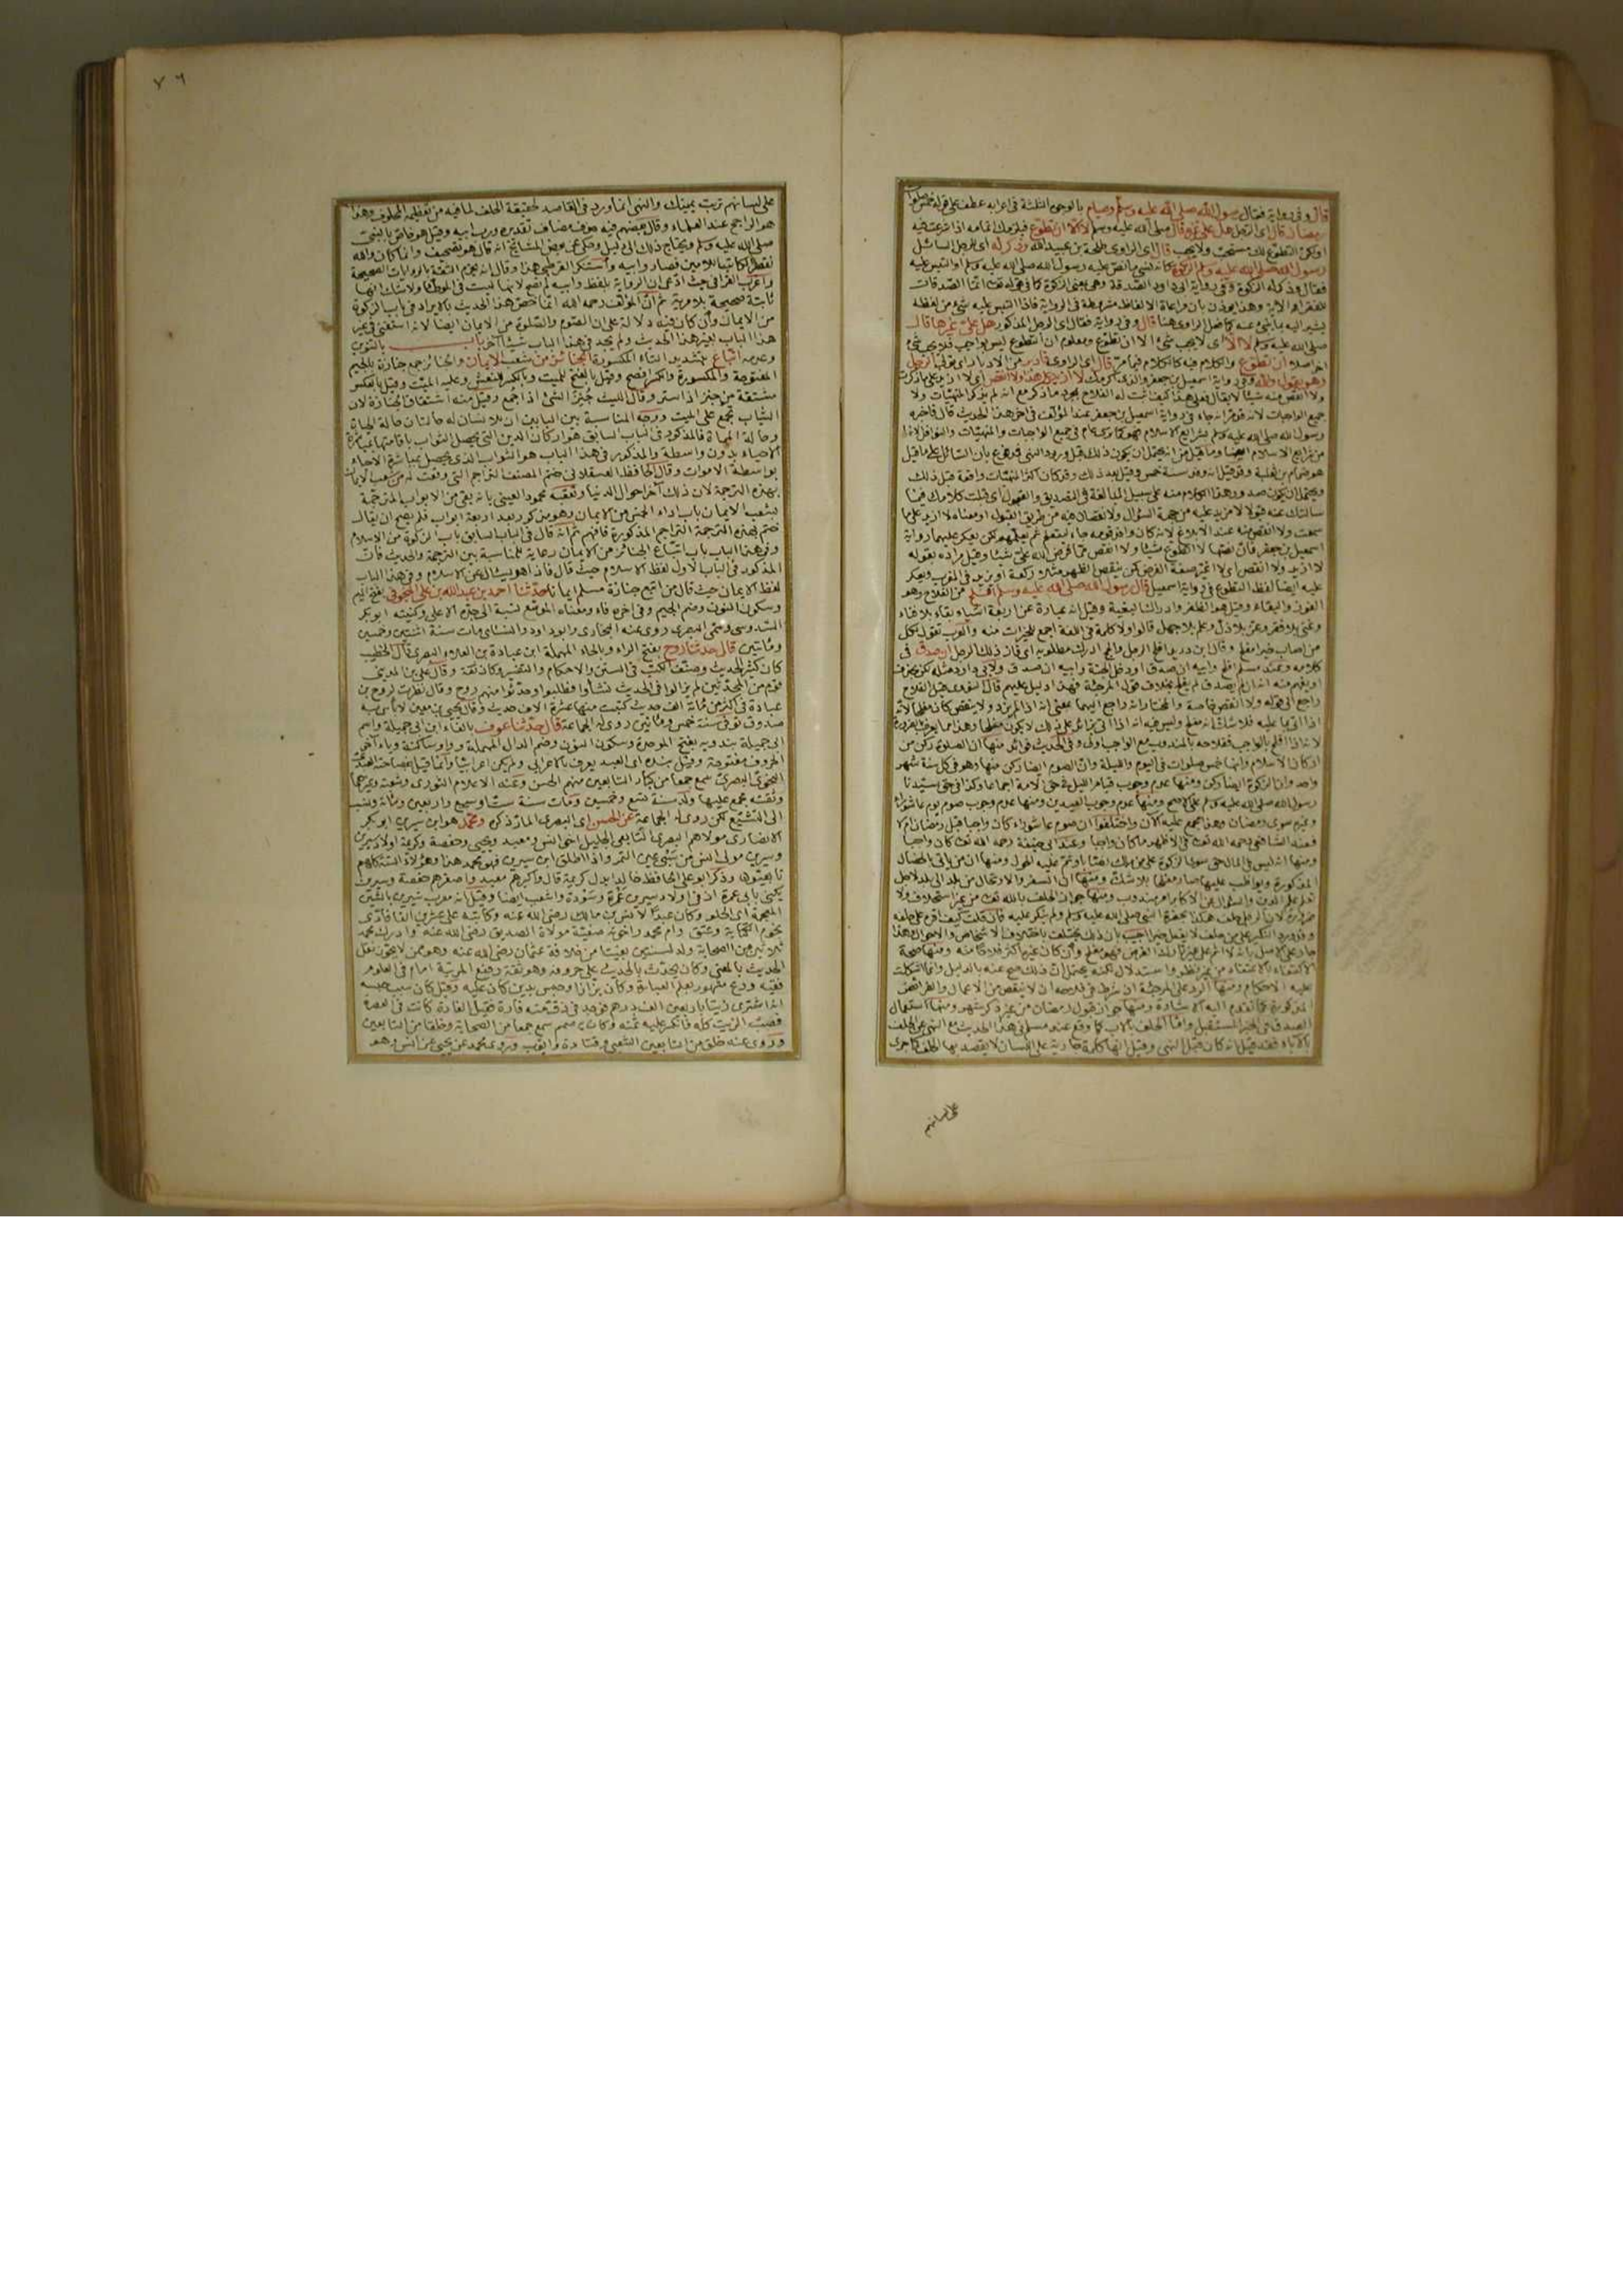 قال وفى رواية فقال رسول الله صلى الله عليه وسلم وصيام بالوجوه الثلثة فى اعرابه عطف على قوله خمس صلوات
رمضان قال اى الرجل هل على غيره قال صلى الله عليه وسلم لا الا ان تطوع فيلزمك اتمامه اذا شرعت فيه
او لكن التطوع لك مستحب ولا يجب قال اى الراوى طلحة بن عبيد الله وذكر له اى للرجل السائل
رسول الله صلى الله عليه وسلم الزكوة كانه نسى ما نص عليه رسول الله صلى الله عليه وسلم او التبس عليه
فقال وذكر له الزكوة وفى رواية ابى داود الصدقة وهى بمعنى الزكوة كما فى قوله تعالى انما الصدقات
للفقراء الاية وهذا يؤذن بان مراعاة الالفاظ مشروطة فى الرواية فاذا التبس عليه شئ من لفظه
يشير اليه بما ينبئ عنه كما فعل الراوى هنا قال وفى رواية فقال اى الرجل المذكور هل على غيرها قال
صلى الله عليه وسلم لا اى لا يجب شئ الا ان تطوع ومعلوم ان التطوع ليس بواجب فلا يجب شئ
اخر اصلا ان تطوع والكلام فيه كالكلام فيما مر قال اى الراوى فادبر من الادبار اى تولى الرجل
وهو يقول والله وفى رواية اسمعيل بن جعفر والذى اكرمك لا ازيد على هذا ولا انقص اى لا ازيد على ما ذكرت
ولا انقص منه شيئا لا يقال فعلى هذا كيف اثبت له الفلاح بمجرد ما ذكر مع انه لم يذكر المنهيات ولا
جميع الواجبات لانه قد جاء فى رواية اسمعيل بن جعفر عند المؤلف فى اخر هذا الحديث قال فاخبره
رسول الله صلى الله عليه وسلم بشرايع الاسلام فهو كما ترى عام فى جميع الواجبات والمنهيات والنوافل
من شرايع الاسلام ايضا وما قيل من انه يحتمل ان يكون ذلك قبل ورود النهى فمدفوع بان السائل على ما قيل
هو ضمام بن ثعلبة وقد قيل انه وفد سنة خمس وقيل بعد ذلك وقد كان اكثر المنهيات واقعة قبل ذلك
ويحتمل ان يكون صدور هذا الكلام منه على سبيل المبالغة فى التصديق والقبول اى قبلت كلامك فيما
سالتك عنه قبولا لا مزيد عليه من جهة السؤال ولا نقصان فيه من طريق القبول او معناه لا ازيد على ما
سمعت ولا انقص منه عند الابلاغ لانه كان وافد قومه جاء ليتعلم ثم يعلمهم لكن يعكر عليهما رواية
اسمعيل بن جعفر فان نصها لا اتطوع شيئا ولا انقص مما فرض الله على شيئا وقيل مراده بقوله
لا ازيد ولا انقص اى لا اغير صفة الفرض كمن ينقص الظهر مثلا ركعة او يزيد فى المغرب ويعكر
عليه ايضا لفظ التطوع فى رواية اسمعيل قال رسول الله صلى الله عليه وسلم افلح من الفلاح وهو
الفوز والبقاء وقيل هو الظفر وادراك البغية وقيل انه عبارة عن اربعة اشياء بقاء بلا فناء
وغنى بلا فقر وعز بلا ذل وعلم بلا جهل قالوا ولا كلمة فى اللغة اجمع للخيرات منه والعرب تقول لكل
من اصاب خيرا مفلح وقال ابن دريد افلح الرجل وانجح ادرك مطلوبه اى فاز ذلك الرجل ان صدق فى
كلامه وعند مسلم افلح وابيه ان صدق او دخل الجنة وابيه ان صدق ولابى داود مثله لكن بحذف
او يفهم منه انه ان لم يصدق لم يفلح بخلاف قول المرجئة فهذا دليل عليهم قال النووى قيل الفلاح
راجع الى قوله ولا انقص خاصة والمختار انه راجع اليهما بمعنى انه اذا لم يزد ولم ينقص كان مفلحا لانه
اذا اتى بما عليه فلا شك انه مفلح وليس فيه انه اذا اتى بزائد على ذلك لا يكون مفلحا وهذا مما يعرف بالضرورة
لانه اذا افلح بالواجب ففلاحه بالمندوب مع الواجب اولى وفى الحديث فوائد منها ان الصلوة ركن من
اركان الاسلام وانها خمس صلوات فى اليوم والليلة وان الصوم ايضا ركن منها وهو فى كل سنة شهر
واحد وان الزكوة ايضا ركن ومنها عدم وجوب قيام الليل فى حق الامة اجماعا وكذا فى حق سيدنا
رسول الله صلى الله عليه وسلم على الاصح ومنها عدم وجوب العيدين ومنها عدم وجوب صوم يوم عاشوراء
وغيره سوى رمضان وهذا مجمع عليه الآن واختلفوا ان صوم عاشوراء كان واجبا قبل رمضان ام لا
فعند الشافعى رحمه الله تعالى فى الاظهر ما كان واجبا وعند ابى حنيفة رحمه الله تعالى كان واجبا
ومنها انه ليس فى المال حق سوى الزكوة على من ملك نصابا وتم عليه الحول ومنها ان من ياتى بالخصال
المذكورة ويواظب عليها صار مفلحا بلا شك ومنها ان السفر والارتحال من بلد الى بلد لاجل
تعلم علم الدين والسؤال عن الاكابر امر مندوب ومنها جواز الحلف بالله تعالى من غير استحلاف ولا
ضرورة لان الرجل حلف هكذا بحضرة النبى صلى الله عليه وسلم ولم ينكر عليه فان قلت كيف اقره على حلفه
وقد ورد النكير على من حلف لا يفعل خيرا اجيب بان ذلك يختلف باختلاف الاشخاص والاحوال وهذا
جار على الاصل بانه لا اثم على غير تارك الفرائض فهو مفلح وان كان غيره اكثر فلاحا منه ومنها صحة
الاكتفاء بالاعتقاد من غير نظر واستدلال لكنه يحتمل ان ذلك صح عنه بالدليل وانما اشكلت
عليه الاحكام ومنها الرد على المرجئة اذ شرط فى فلاحه ان لا ينقص من الاعمال والفرائض
المذكورة كما تقدم اليه الاشارة ومنها جواز قول رمضان من غير ذكر شهر ومنها استعمال
الصدق فى الخبر المستقبل واما الحلف بالاب كما وقع عند مسلم فى هذا الحديث مع النهى عن الحلف
بالاباء فقد قيل انه كان قبل النهى وقيل انها كلمة جارية على اللسان لا يقصد بها الحلف كما جرى
على لسانهم
٧٦
على لسانهم تربت يمينك والنهى انما ورد فى القاصد لحقيقة الحلف لما فيه من تعظيم المحلوف وهذا
هو الراجح عند العلماء وقال بعضهم فيه حذف مضاف تقديره ورب ابيه وقيل هو خاص بالنبى
صلى الله عليه وسلم ويحتاج ذلك الى دليل وحكى عن بعض المشائخ انه قال هو تصحيف وانما كان والله
فقصر الكاتب اللامين فصار وابيه واستنكر القرطبى هذا وقال انه يخرم الثقة بالروايات الصحيحة
واغرب القرافى حيث ادعى ان الرواية بلفظ وابيه لم تصح لانها ليست فى الموطأ ولا شك انها
ثابتة صحيحة بلا مرية ثم ان المؤلف رحمه الله انما خص هذا الحديث بالايراد فى باب الزكوة
من الايمان وان كان فيه دلالة على ان الصوم والصلوة من الايمان ايضا لانه استغنى فى غير
هذا الباب بغير هذا الحديث ولم يجد فى هذا الباب شيئا آخر باب بالتنوين
وعدمه اتباع بتشديد التاء المكسورة الجنائز من شعب الايمان والجنائز جمع جنازة بالجيم
المفتوحة والمكسورة والكسر افصح وقيل بالفتح للميت وبالكسر للنعش وعليه الميت وقيل بالعكس
مشتقة من جنز اذا ستر وقال الليث جنز الشئ اذا جمع وقيل منه اشتقاق الجنازة لان
الثياب تجمع على الميت ووجه المناسبة بين البابين ان للانسان له حالتان حالة الحياة
وحالة الممات فالمذكور فى الباب السابق هو اركان الدين التى يحصل الثواب باقامتها بمباشرة
الاحياء بدون واسطة والمذكور فى هذا الباب هو الثواب الذى يحصل بمباشرة الاحياء
بواسطة الاموات وقال الحافظ العسقلانى ختم المصنف التراجم التى وقعت له من شعب الايمان
بهذه الترجمة لان ذلك آخر احوال الدنيا وتعقبه محمود العينى بانه بقى من الابواب المترجمة
بشعب الايمان باب اداء الخمس من الايمان وهو مذكور بعد اربعة ابواب فلم يصح ان يقال
ختم بهذه الترجمة التراجم المذكورة فافهم ثم انه قال فى الباب السابق باب الزكوة من الاسلام
وفى هذا الباب باب اتباع الجنائز من الايمان رعاية للمناسبة بين الترجمة والحديث فان
المذكور فى الباب الاول لفظ الاسلام حيث قال فاذا هو يسأل عن الاسلام وفى هذا الباب
لفظ الايمان حيث قال من اتبع جنازة مسلم ايمانا حدثنا احمد بن عبد الله بن على المنجوفى بفتح الميم
وسكون النون وضم الجيم وفى اخره فاء ومعناه الموسع نسبة الى جده الاعلى وكنيته ابو بكر
السدوسى البصرى روى عنه البخارى وابو داود والنسائى مات سنة اثنتين وخمسين
ومائتين قال حدثنا روح بفتح الراء وبالحاء المهملة ابن عبادة بن العلاء البصرى قال الخطيب
كان كثير الحديث وصنف الكتب فى السنن والاحكام والتفسير وكان ثقة وقال على بن المدينى
قوم من المحدثين لم يزالوا فى الحديث نشأوا فطلبوا وحدثوا منهم روح وقال نظرت لروح بن
عبادة فى اكثر من مائة الف حديث كتبت منها عشرة الاف حديث وقال يحيى بن معين لا بأس به
صدوق توفى سنة خمس ومائتين روى له الجماعة قال حدثنا عوف بالفاء ابن ابى جميلة واسم
ابى جميلة بندويه بفتح الموحدة وسكون النون وضم الدال المهملة وواو ساكنة وياء آخر
الحروف مفتوحة وقيل بنده اى العبد يعرف بالاعرابى ولم يكن اعرابيا وانما قيل لفصاحته العبدى
الهجرى البصرى سمع جمعا من كبار التابعين منهم الحسن وعنه الاعلام الثورى وشعبة وغيرهما
وثقته مجمع عليها ولد سنة تسع وخمسين ومات سنة ست او سبع واربعين ومائة ونسب
الى التشيع لكن روى له الجماعة عن الحسن اى البصرى المار ذكره ومحمد هو ابن سيرين ابو بكر
الانصارى مولاهم البصرى التابعى الجليل اخى انس ومعبد ويحيى وحفصة وكريمة اولاد سيرين
وسيرين مولى انس من سبى عين التمر واذا اطلق ابن سيرين فهو محمد هذا وهؤلاء الستة كلهم
تابعيون وذكر ابو على الحافظ خالدا بدل كريمة قال واكبرهم معبد واصغرهم حفصة وسيرين
يكنى بابى عمرة اذ فى اولاد سيرين عمرة وسودة واشعب ايضا وقيل انه معرب شيرين بالشين
المعجمة اى الحلو وكان عبدا لانس بن مالك رضى الله عنه وكاتبه على عشرين الفا فادى
نجوم الكتابة وعتق وام محمد واخوته صفية مولاة الصديق رضى الله عنه وادرك محمد
ثلاثين من الصحابة ولد لسنتين بقيتا من خلافة عثمان رضى الله عنه وهو ممن لا يجوز نقل
الحديث بالمعنى وكان يحدث بالحديث على حروفه وهو ثقة رفيع المرتبة امام فى العلوم
فقيه ورع مشهور بعلم العبارة وكان بزازا وحبس بدين كان عليه وقيل كان سبب حبسه
انه اشترى زيتا باربعين الف درهم فوجد فى زق منه فارة فقيل الفارة كانت فى المعصرة
فصب الزيت كله فانكسر عليه ثمنه وكان به صمم سمع جمعا من الصحابة وخلقا من التابعين
وروى عنه خلق من التابعين الشعبى وقتادة وايوب وروى محمد عن يحيى عن انس وهو